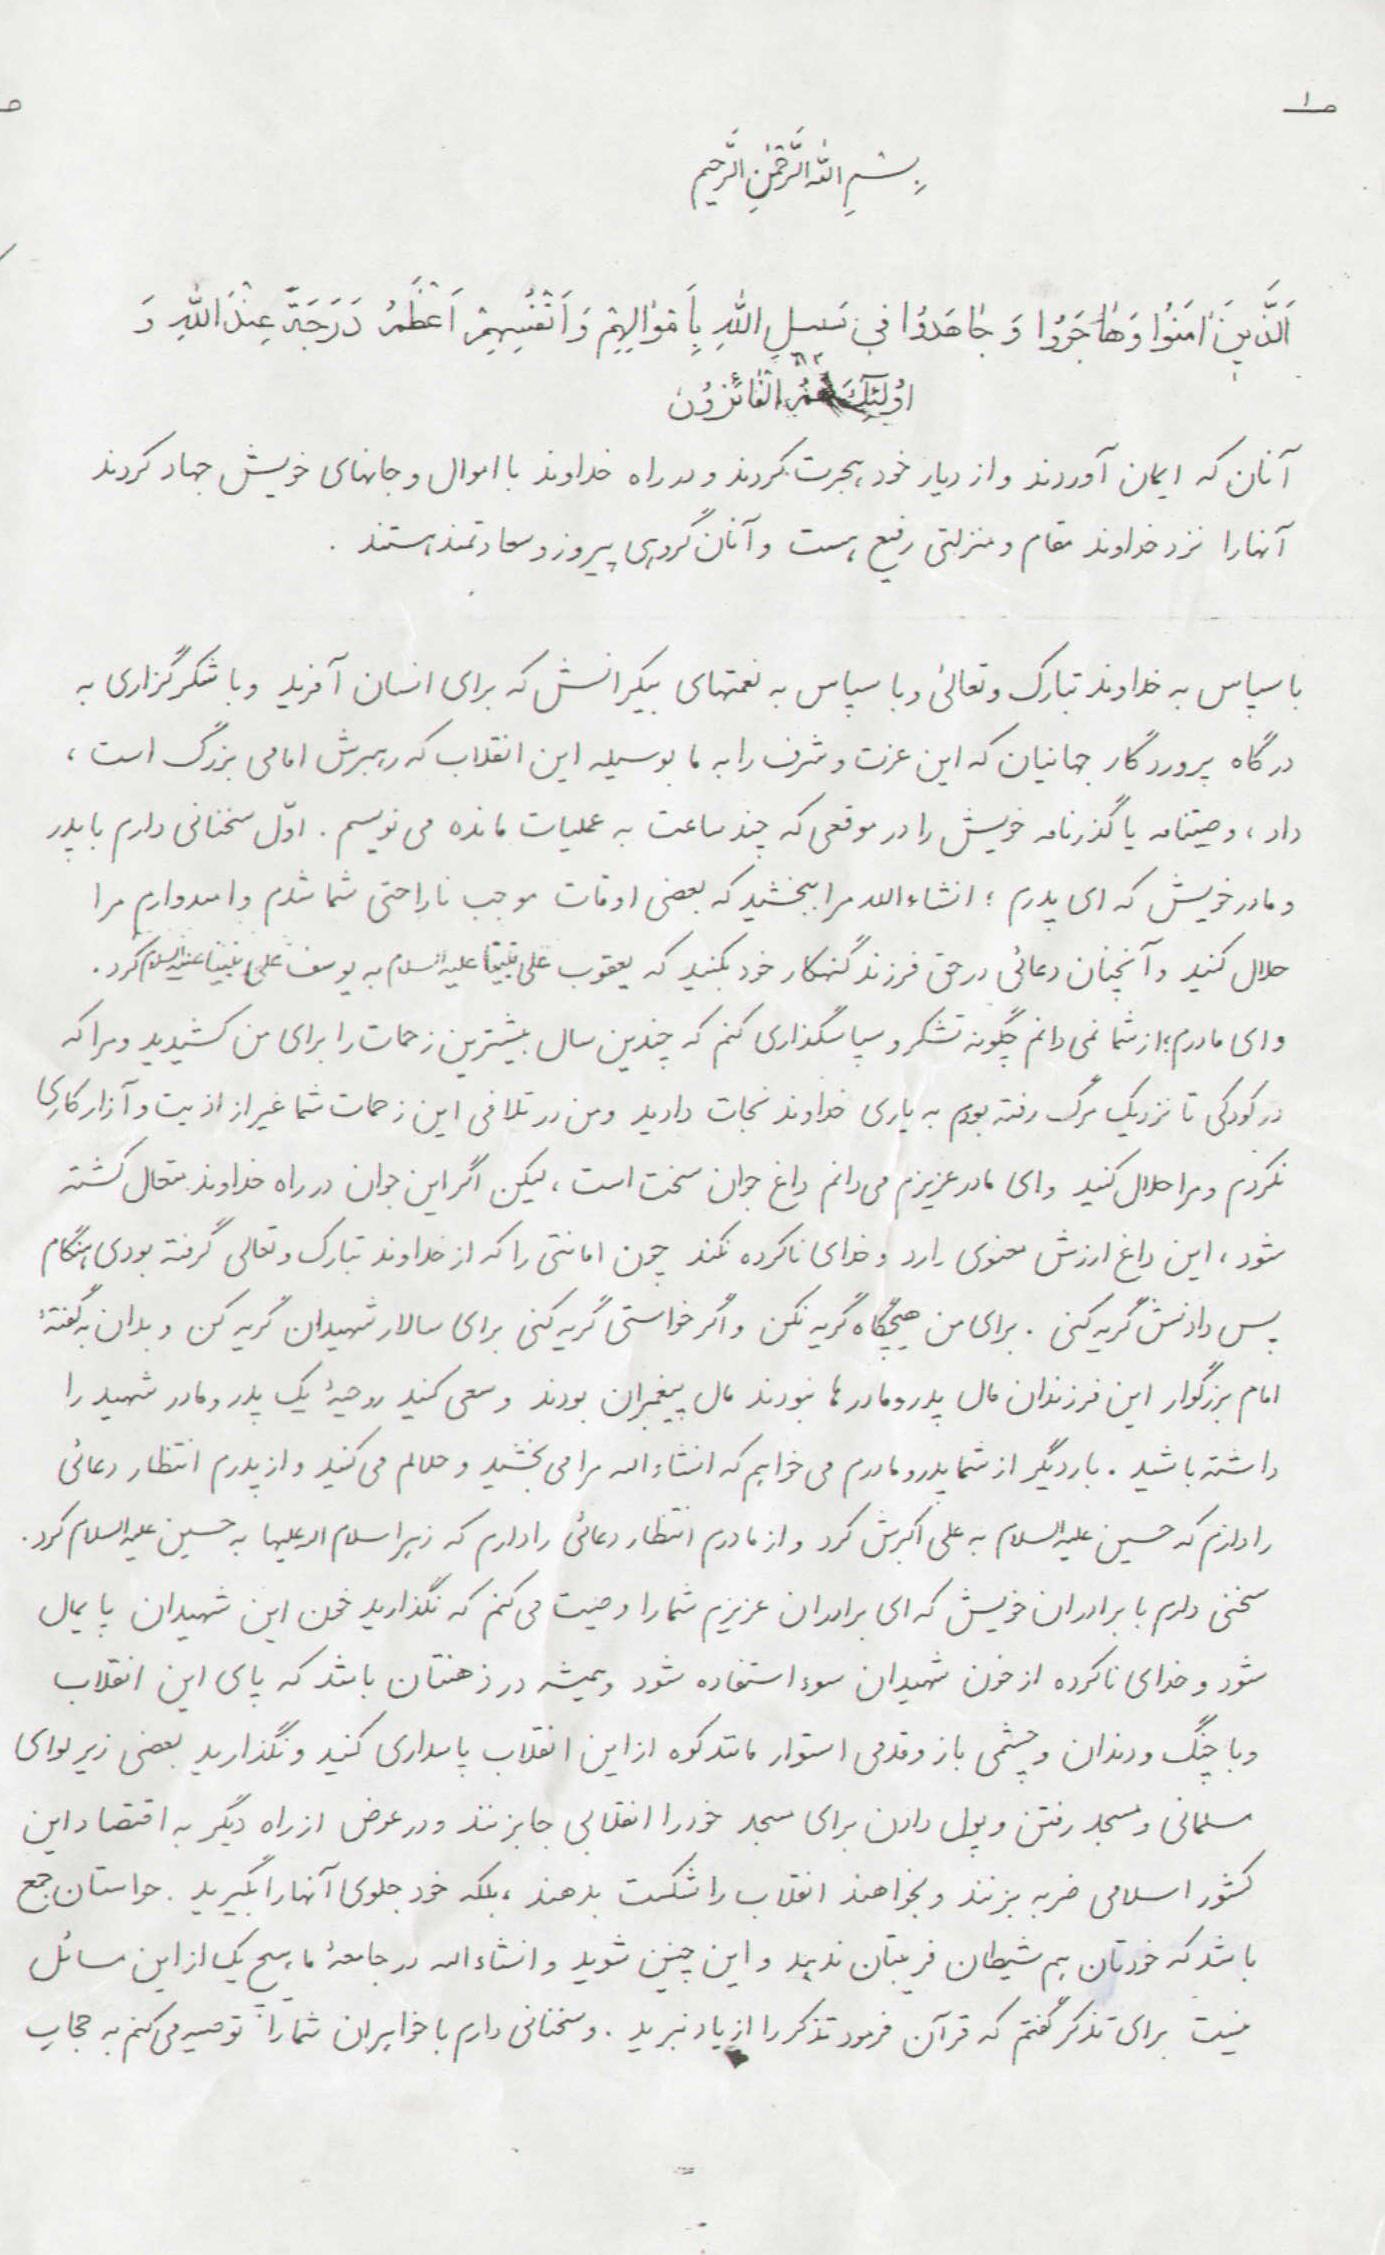 ص۱
بِسْمِ اللهِ الرَّحْمٰنِ الرَّحیم
اَلَّذینَ امَنُوا وَ هٰاجَرُوا وَ جٰاهَدُوا فی سَبیلِ اللهِ بِاَمْوٰالِهِمْ وَ اَنْفُسِهِمْ اَعْظَمُ دَرَجَةً عِنْدَ اللهِ وَ
اُولٰئِکَ هُمُ الْفٰائِزُونَ
آنان که ایمان آوردند و از دیار خود هجرت کردند و در راه خداوند با اموال و جانهای خویش جهاد کردند
آنها را نزد خداوند مقام و منزلتی رفیع هست و آنان گروهی پیروز و سعادتمند هستند .
با سپاس به خداوند تبارک و تعالیٰ و با سپاس به نعمتهای بیکرانش که برای انسان آفرید و با شکرگزاری به
درگاه پروردگار جهانیان که این عزت و شرف را به ما بوسیله این انقلاب که رهبرش امامی بزرگ است ،
داد ، وصیتنامه یا گذرنامه خویش را در موقعی که چند ساعت به عملیات مانده می نویسم . اوّل سخنانی دارم با پدر
و مادر خویش که ای پدرم ؛ انشاءالله مرا ببخشید که بعضی اوقات موجب ناراحتی شما شدم و امیدوارم مرا
حلال کنید و آنچنان دعائی در حق فرزند گنهکار خود بکنید که یعقوب علی نبینا علیه السلام به یوسف علی نبینا علیه السلام کرد .
و ای مادرم ؛ از شما نمی دانم چگونه تشکر و سپاسگذاری کنم که چندین سال بیشترین زحمات را برای من کشیدید و مرا که
در کودکی تا نزدیک مرگ رفته بودم به یاری خداوند نجات دادید و من در تلافی این زحمات شما غیر از اذیت و آزار کاری
نکردم و مرا حلال کنید و ای مادر عزیزم می دانم داغ جوان سخت است ، لیکن اگر این جوان در راه خداوند متعال کشته
شود ، این داغ ارزش معنوی دارد و خدای ناکرده نکند چون امانتی را که از خداوند تبارک و تعالی گرفته بودی هنگام
پس دادنش گریه کنی . برای من هیچگاه گریه نکن و اگر خواستی گریه کنی برای سالار شهیدان گریه کن و بدان به گفتهٔ
امام بزرگوار این فرزندان مال پدر و مادرها نبودند مال پیغمبران بودند و سعی کنید روحیهٔ یک پدر و مادر شهید را
داشته باشید . بار دیگر از شما پدر و مادرم می خواهم که انشاءالله مرا می بخشید و حلالم می کنید و از پدرم انتظار دعائی
را دارم که حسین علیه السلام به علی اکبرش کرد و از مادرم انتظار دعائی را دارم که زهرا سلام الله علیها به حسین علیه السلام کرد .
سخنی دارم با برادران خویش که ای برادران عزیزم شما را وصیت می کنم که نگذارید خون این شهیدان پایمال
شود و خدای ناکرده از خون شهیدان سوء استفاده شود و همیشه در ذهنتان باشد که پای این انقلاب
و با چنگ و دندان و چشمی باز و قدمی استوار مانند کوه از این انقلاب پاسداری کنید و نگذارید بعضی زیر لوای
مسلمانی و مسجد رفتن و پول دادن برای مسجد خود را انقلابی جا بزنند و در عوض از راه دیگر به اقتصاد این
کشور اسلامی ضربه بزنند و بخواهند انقلاب را شکست بدهند ، بلکه خود جلوی آنها را بگیرید . حواستان جمع
باشد که خودتان هم شیطان فریبتان ندهد و این چنین شوید و انشاءالله در جامعهٔ ما هیچ یک از این مسائل
نیست برای تذکر گفتم که قرآن فرمود تذکر را از یاد نبرید . و سخنانی دارم با خواهران شما را توصیه می کنم به حجاب